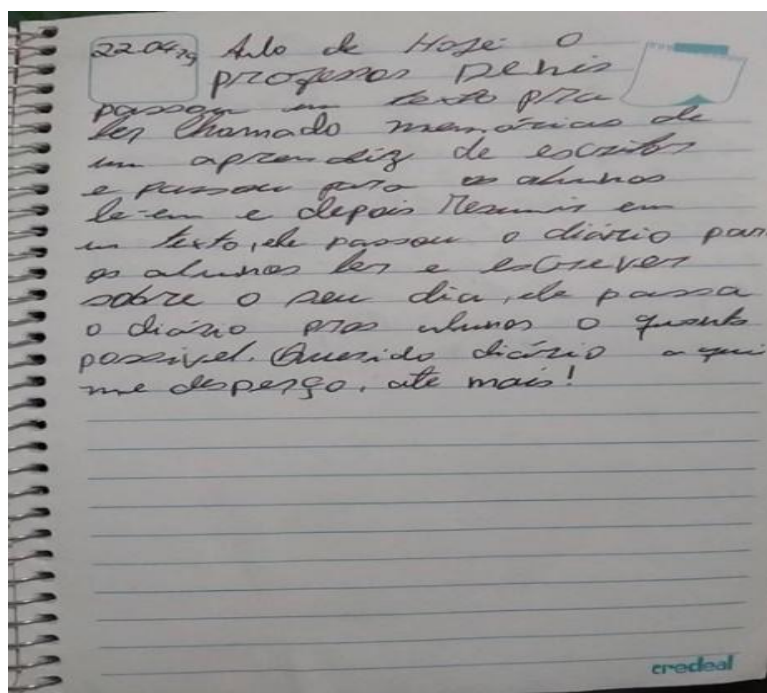 22.04.19 Aulo de Hoje: O
professor Denis
passou um texto pra
ler Chamado memórias de
um aprendiz de escritor
e passou para os alunos
lê-em e depois Resumir em
um texto, ele passou o diário para
os alunos ler e escrever
sobre o seu dia, ele passa
o diário pros alunos o quanto
possivel. Querido diário a qui
me desperço, até mais!
credeal